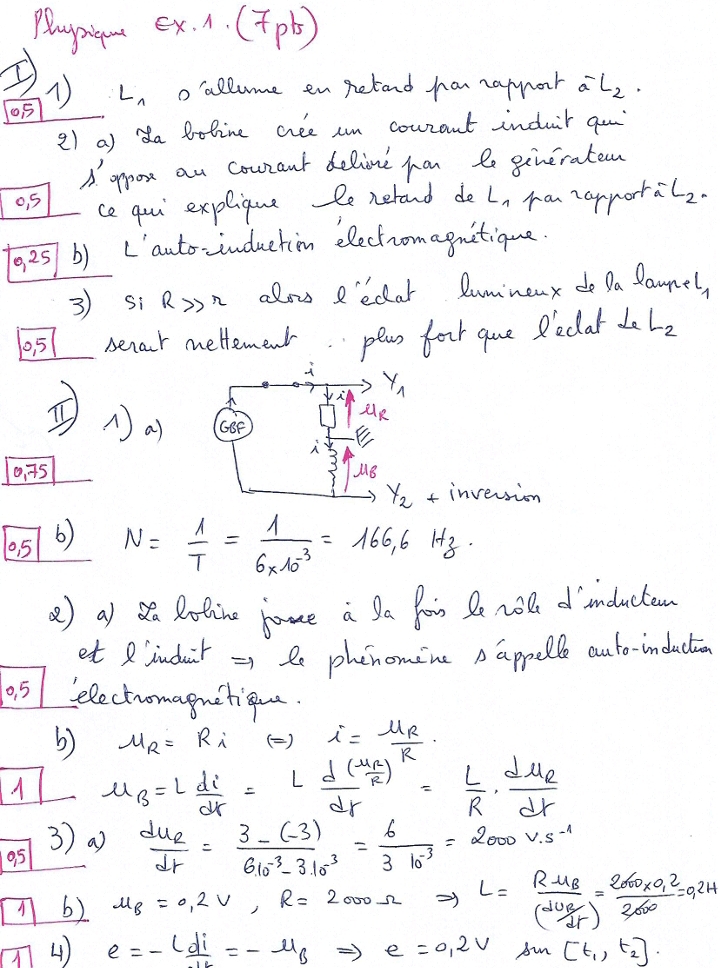 Physique Ex.1. (7pts)
I) 1) L₁ s'allume en retard par rapport à L₂.
0,5
2) a) La bobine crée un courant induit qui
s'oppose au courant délivré par le générateur
0,5 ce qui explique le retard de L₁ par rapport à L₂.
0,25 b) L'auto-induction électromagnétique.
3) si R >> r alors l'éclat lumineux de la lampe L₁
0,5 serait nettement plus fort que l'éclat de L₂
II) 1) a)
i Y₁
i uR
GBF
i uB
Y₂ + inversion
0,75
0,5 b) N = 1/T = 1/(6×10⁻³) = 166,6 Hz.
2) a) La bobine joue à la fois le rôle d'inducteur
et l'induit ⇒ le phénomène s'appelle auto-induction
0,5 électromagnétique.
b) uR = Ri ⇔ i = uR/R.
1 uB = L di/dt = L d(uR/R)/dt = L/R . duR/dt
0,5 3) a) duR/dt = (3-(-3))/(6.10⁻³-3.10⁻³) = 6/(3 10⁻³) = 2000 V.s⁻¹
1 b) uB = 0,2 V, R = 2000 Ω ⇒ L = R uB/(duR/dt) = (2000×0,2)/2000 = 0,2H
1 4) e = -L di/dt = -uB ⇒ e = 0,2V sur [t₁, t₂].